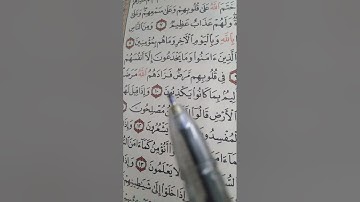 خَتَمَ ٱللَّهُ عَلَىٰ قُلُوبِهِمْ وَعَلَىٰ سَمْعِهِمْ وَعَلَىٰ
وَلَهُمْ عَذَابٌ عَظِيمٌ ٧
بِٱللَّهِ وَبِٱلْيَوْمِ ٱلْآخِرِ وَمَا هُم بِمُؤْمِنِينَ ٨
ٱلَّذِينَ ءَامَنُوا۟ وَمَا يَخْدَعُونَ إِلَّآ أَنفُسَهُمْ
فِى قُلُوبِهِم مَّرَضٌ فَزَادَهُمُ ٱللَّهُ مَرَضًا
أَلِيمٌۢ بِمَا كَانُوا۟ يَكْذِبُونَ ١٠ وَإِذَا قِيلَ لَهُمْ
ٱلْأَرْضِ قَالُوٓا۟ مُصْلِحُونَ
ٱلْمُفْسِدُونَ يَشْعُرُونَ ١٢ وَإِذَا
ءَامَنَ ٱلنَّاسُ أَنُؤْمِنُ كَمَآ ءَامَنَ
لَّا يَعْلَمُونَ ١٣
وَإِذَا خَلَوْا۟ إِلَىٰ شَيَٰطِينِهِمْ